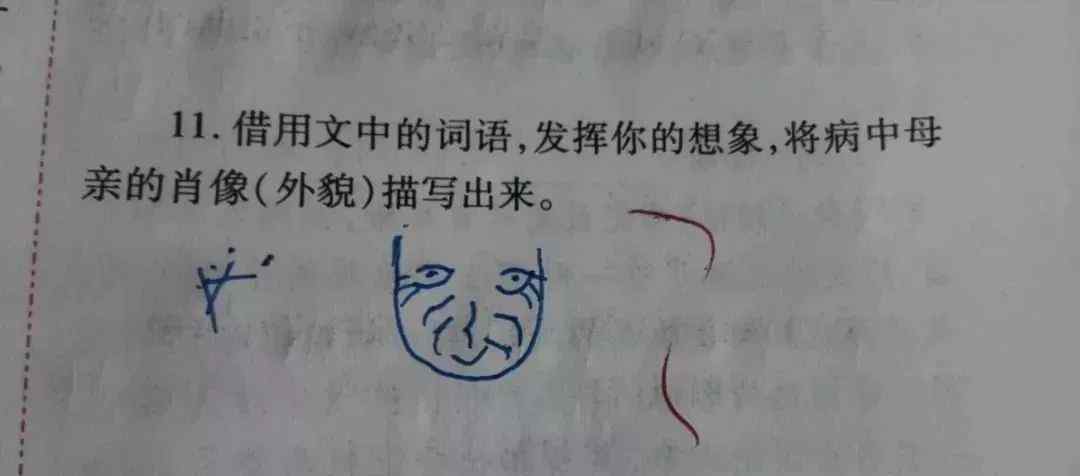 11. 借用文中的词语,发挥你的想象,将病中母
亲的肖像(外貌)描写出来。